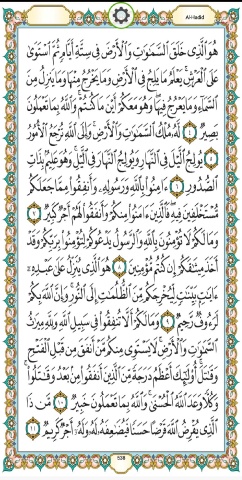 Al-Hadid
هُوَ ٱلَّذِى خَلَقَ ٱلسَّمَٰوَٰتِ وَٱلْأَرْضَ فِى سِتَّةِ أَيَّامٍ ثُمَّ ٱسْتَوَىٰ
عَلَى ٱلْعَرْشِ يَعْلَمُ مَا يَلِجُ فِى ٱلْأَرْضِ وَمَا يَخْرُجُ مِنْهَا وَمَا يَنزِلُ مِنَ
ٱلسَّمَآءِ وَمَا يَعْرُجُ فِيهَا وَهُوَ مَعَكُمْ أَيْنَ مَا كُنتُمْ وَٱللَّهُ بِمَا تَعْمَلُونَ
بَصِيرٌ ٤ لَّهُۥ مُلْكُ ٱلسَّمَٰوَٰتِ وَٱلْأَرْضِ وَإِلَى ٱللَّهِ تُرْجَعُ ٱلْأُمُورُ
٥ يُولِجُ ٱلَّيْلَ فِى ٱلنَّهَارِ وَيُولِجُ ٱلنَّهَارَ فِى ٱلَّيْلِ وَهُوَ عَلِيمٌۢ بِذَاتِ
ٱلصُّدُورِ ٦ ءَامِنُوا۟ بِٱللَّهِ وَرَسُولِهِۦ وَأَنفِقُوا۟ مِمَّا جَعَلَكُم
مُّسْتَخْلَفِينَ فِيهِ فَٱلَّذِينَ ءَامَنُوا۟ مِنكُمْ وَأَنفَقُوا۟ لَهُمْ أَجْرٌ كَبِيرٌ ٧
وَمَا لَكُمْ لَا تُؤْمِنُونَ بِٱللَّهِ وَٱلرَّسُولُ يَدْعُوكُمْ لِتُؤْمِنُوا۟ بِرَبِّكُمْ وَقَدْ
أَخَذَ مِيثَٰقَكُمْ إِن كُنتُم مُّؤْمِنِينَ ٨ هُوَ ٱلَّذِى يُنَزِّلُ عَلَىٰ عَبْدِهِۦٓ
ءَايَٰتٍۭ بَيِّنَٰتٍ لِّيُخْرِجَكُم مِّنَ ٱلظُّلُمَٰتِ إِلَى ٱلنُّورِ وَإِنَّ ٱللَّهَ بِكُمْ
لَرَءُوفٌ رَّحِيمٌ ٩ وَمَا لَكُمْ أَلَّا تُنفِقُوا۟ فِى سَبِيلِ ٱللَّهِ وَلِلَّهِ مِيرَٰثُ
ٱلسَّمَٰوَٰتِ وَٱلْأَرْضِ لَا يَسْتَوِى مِنكُم مَّنْ أَنفَقَ مِن قَبْلِ ٱلْفَتْحِ
وَقَٰتَلَ أُو۟لَٰٓئِكَ أَعْظَمُ دَرَجَةً مِّنَ ٱلَّذِينَ أَنفَقُوا۟ مِنۢ بَعْدُ وَقَٰتَلُوا۟
وَكُلًّا وَعَدَ ٱللَّهُ ٱلْحُسْنَىٰ وَٱللَّهُ بِمَا تَعْمَلُونَ خَبِيرٌ ١٠ مَّن ذَا
ٱلَّذِى يُقْرِضُ ٱللَّهَ قَرْضًا حَسَنًا فَيُضَٰعِفَهُۥ لَهُۥ وَلَهُۥٓ أَجْرٌ كَرِيمٌ ١١
538